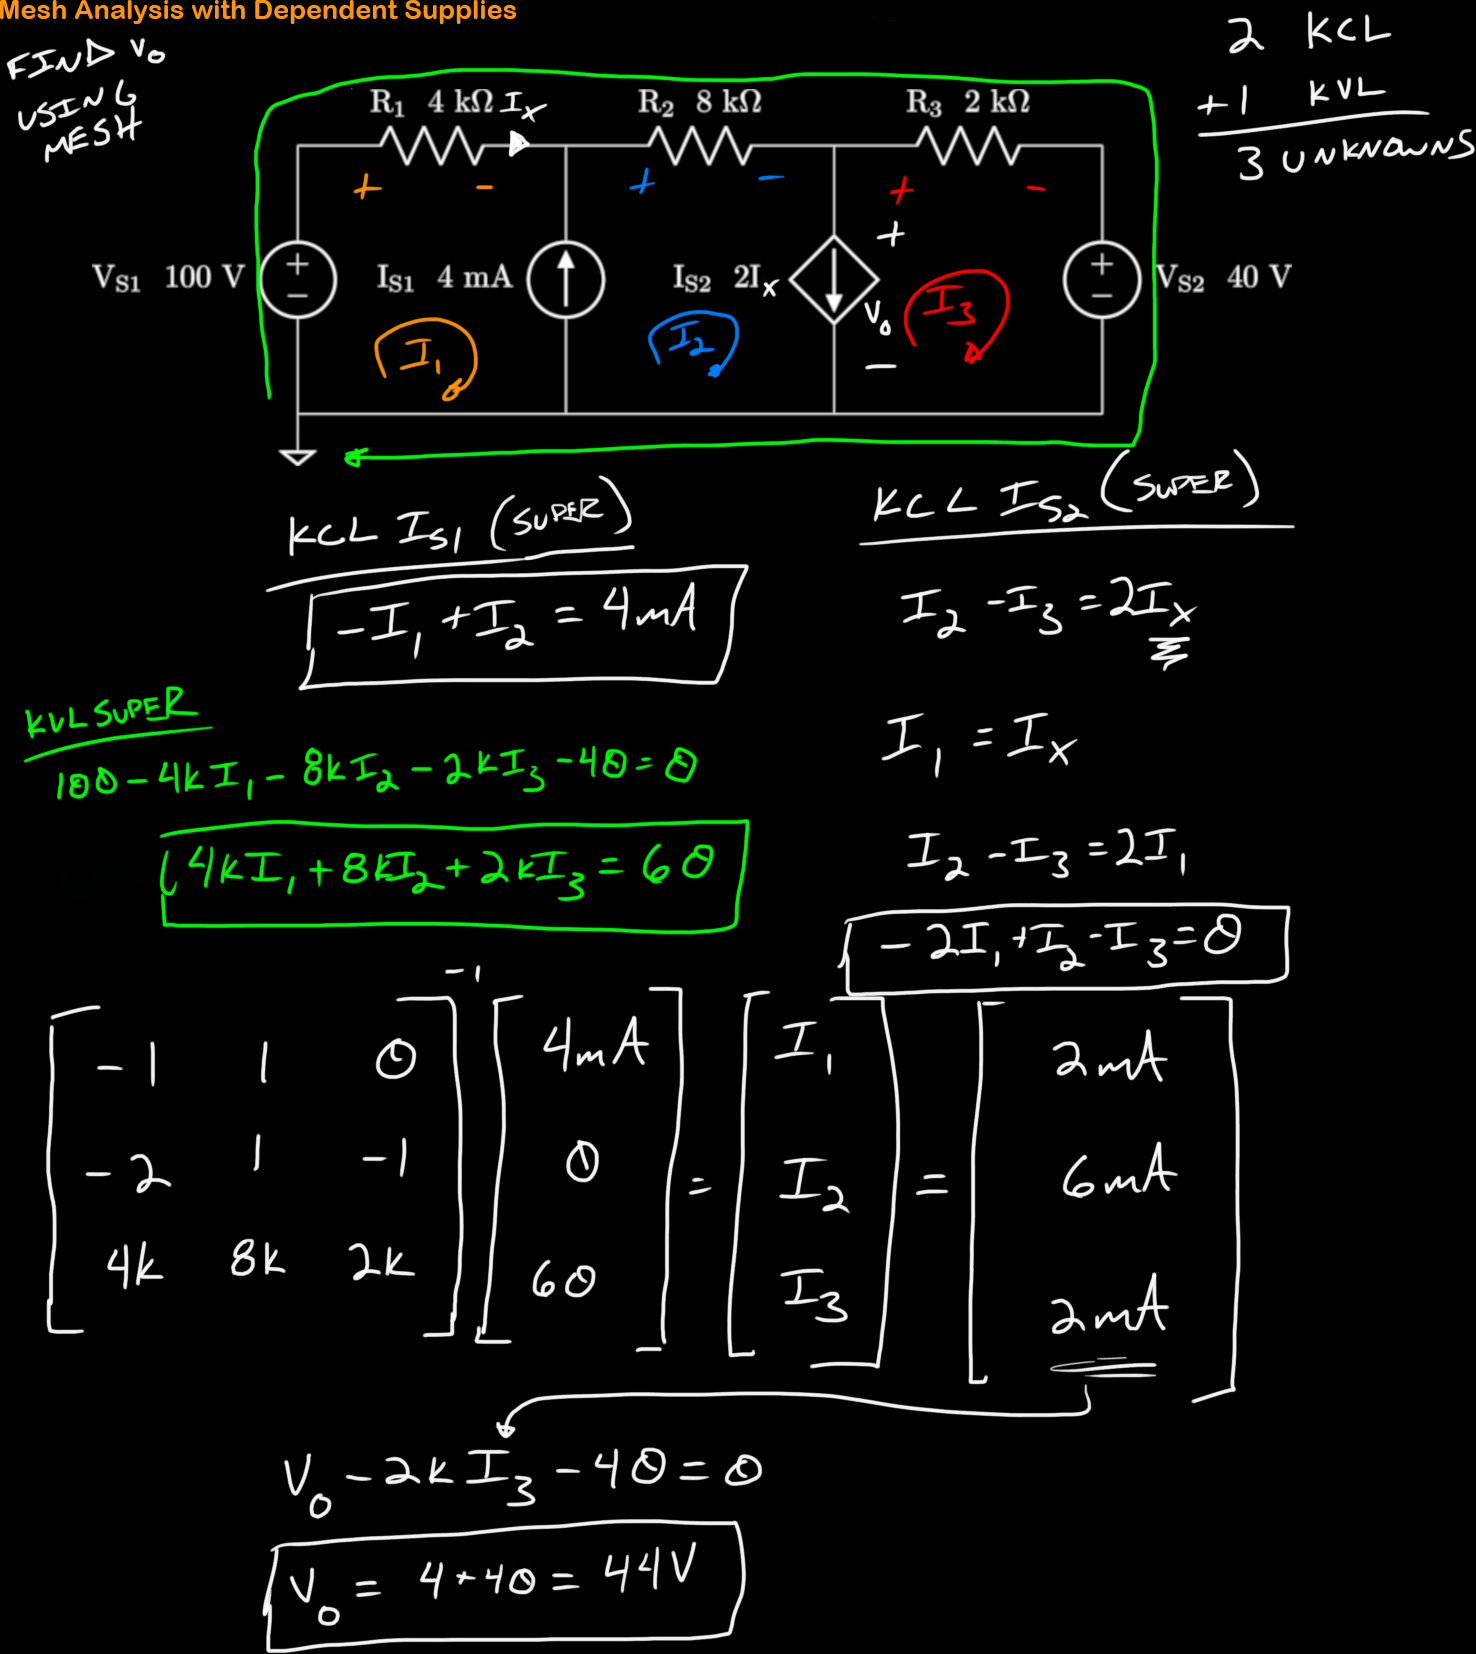 Mesh Analysis with Dependent Supplies
FIND V₀
USING
MESH
2 KCL
+1 KVL
3 UNKNOWNS
R₁ 4 kΩ Iₓ
R₂ 8 kΩ
R₃ 2 kΩ
+ -
+ -
+ -
V_S1 100 V
+
−
I_S1 4 mA
I_S2 2Iₓ
+
V₀
−
+
−
V_S2 40 V
I₁
I₂
I₃
KCL I_S1 (SUPER)
-I₁ + I₂ = 4mA
KCL I_S2 (SUPER)
I₂ - I₃ = 2Iₓ
I₁ = Iₓ
I₂ - I₃ = 2I₁
-2I₁ + I₂ - I₃ = 0
KVL SUPER
100 - 4kI₁ - 8kI₂ - 2kI₃ - 40 = 0
4kI₁ + 8kI₂ + 2kI₃ = 60
-1
-1 1 0 4mA I₁ 2mA
-2 1 -1 0 = I₂ = 6mA
4k 8k 2k 60 I₃ 2mA
V₀ - 2kI₃ - 40 = 0
V₀ = 4 + 40 = 44V